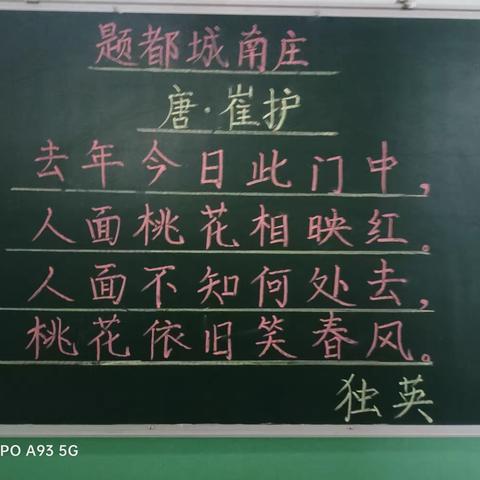 题都城南庄
唐·崔护
去年今日此门中，
人面桃花相映红。
人面不知何处去，
桃花依旧笑春风。
独英
PO A93 5G